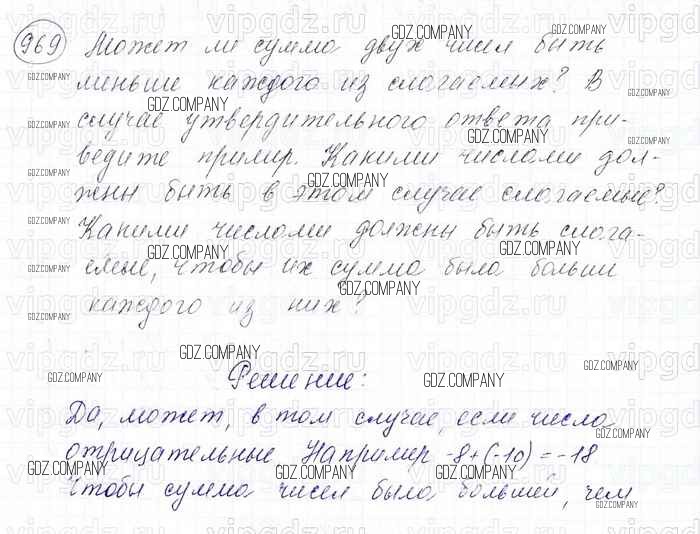 969 Может ли сумма двух чисел быть
меньше каждого из слогаемых? В
случае утвердительного ответа при-
ведите пример. Какими числами дол-
жны быть в этом случае слогаемые?
Какими числами должны быть слога-
емые, чтобы их сумма была больше
каждого из них?
Решение:
Да, может, в том случае, если числа
отрицательные Например -8+(-10)=-18
Чтобы сумма чисел была большей, чем
GDZ.COMPANY
vipgdz.ru